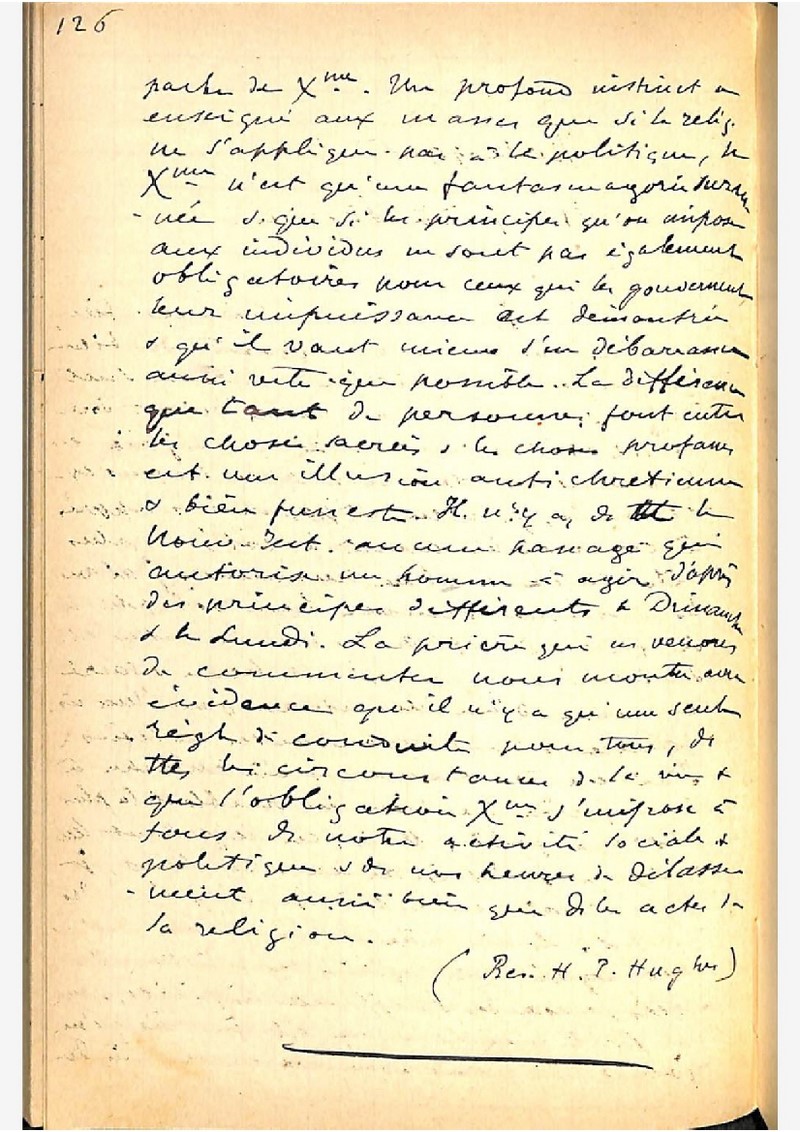 126
parler de Xme. Un profond instinct a
enseigné aux masses que si la relig.
ne s'applique pas à la politique, le
Xme n'est qu'une fantasmagorie suran
-née & que si les principes qu'on impose
aux individus ne sont pas également
obligatoires pour ceux qui les gouvernent
leur impuissance est démontrée
& qu'il vaut mieux s'en débarrasser
aussi vite que possible. La différence
que tant de personnes font entre
les choses sacrées & les choses profanes
est une illusion antichrétienne
& bien funeste. Il n'y a, ds le
Nouv. Test. aucun passage qui
autorise un homme à agir d'après
des principes différents le Dimanche
& le Lundi. La prière que ns venons
de commenter nous montre avec
évidence qu'il n'y a qu'une seule
règle de conduite pour tous, ds
ttes les circonstances de la vie &
que l'obligation Xme s'impose à
tous ds notre activité sociale &
politique & ds nos heures de délasse
-ment aussi bien que ds les actes de
la religion.
(Rev. H. P. Hughes)